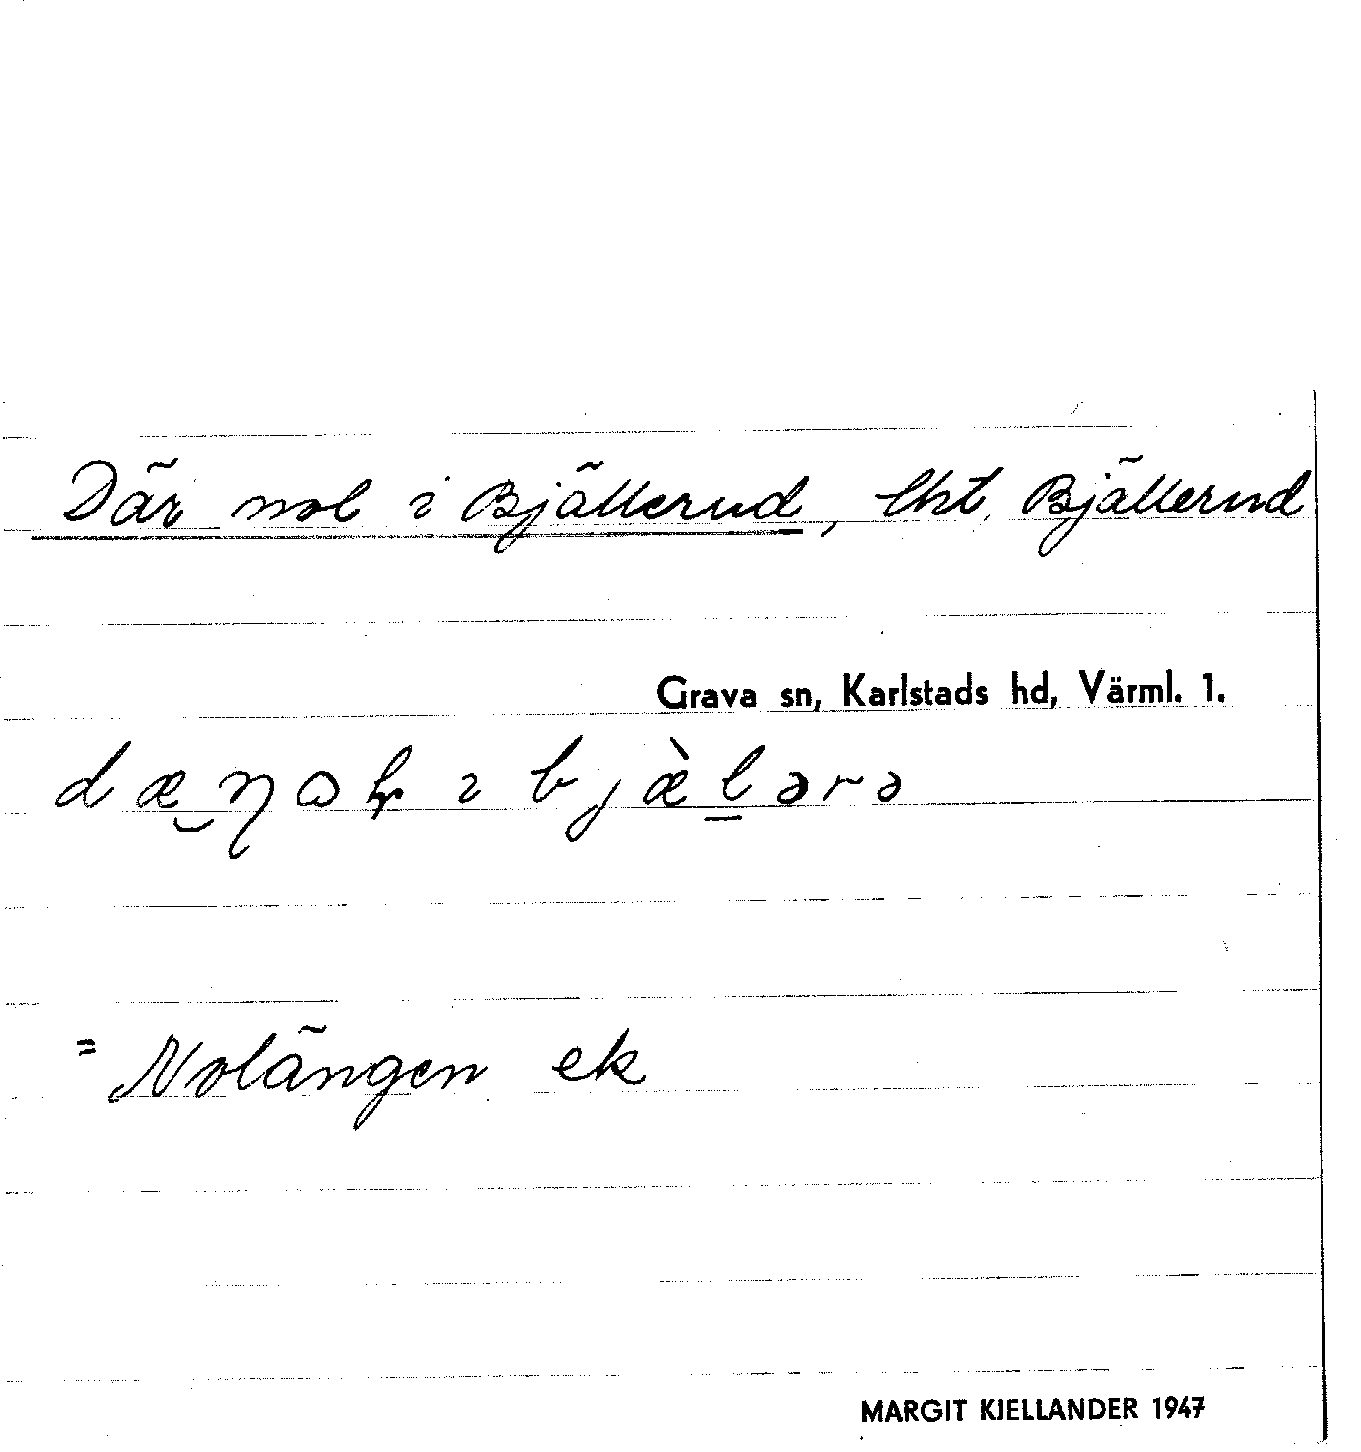 Där nol i Bjällerud, lht Bjällerud
Grava sn, Karlstads hd, Värml. 1.
= Nolängen ek
MARGIT KJELLANDER 1947